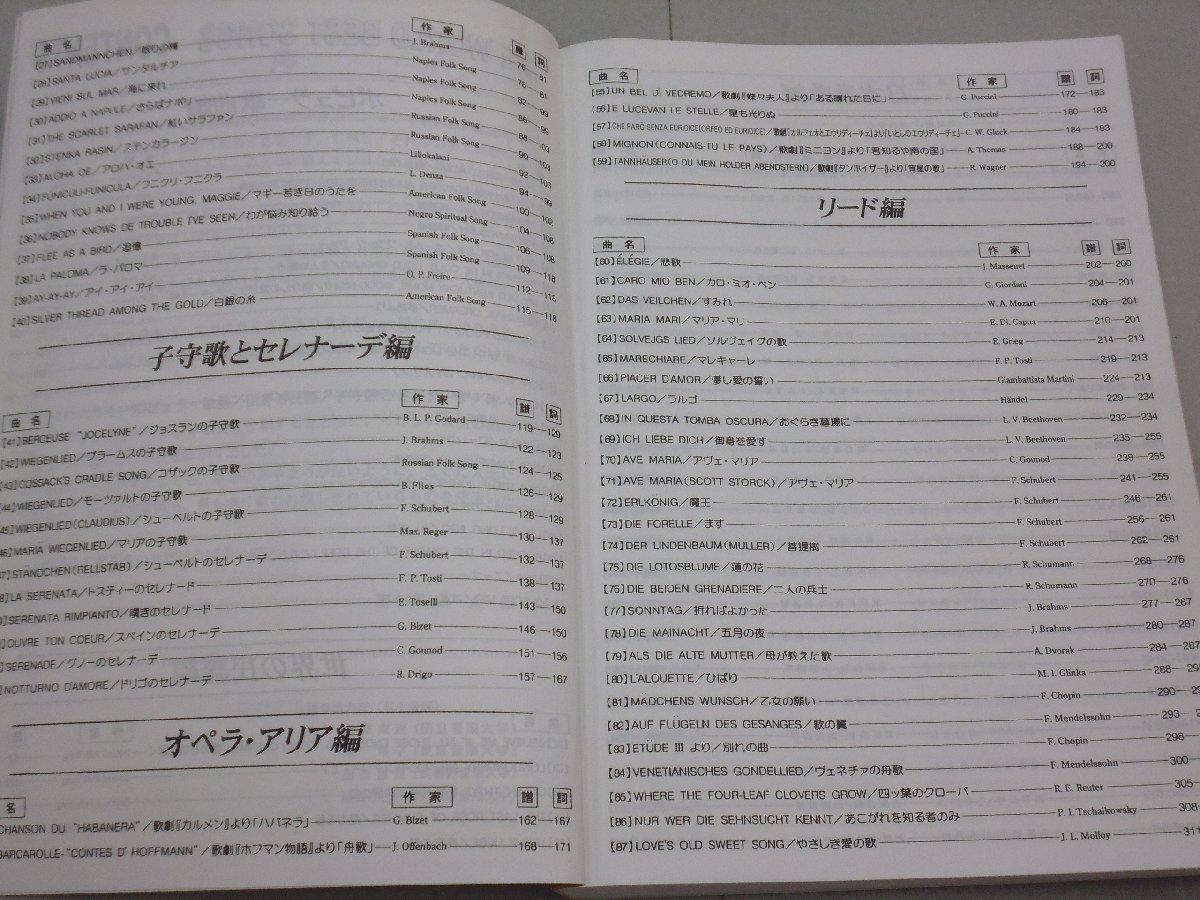 曲名 作家 譜 詞
[27]SANDMANNCHEN/眠りの精 J. Brahms 76—81
[28]SANTA LUCIA/サンタルチア Naples Folk Song 78—81
[29]VIENI SUL MAR/海に来れ Naples Folk Song 82—99
[30]ADDIO A NAPULE/さらばナポリ Naples Folk Song 86—99
[31]THE SCARLET SARAFAN/紅いサラファン Russian Folk Song 88—103
[32]STENKA RASIN/ステンカラージン Russian Folk Song 90—103
[33]ALOHA OE/アロハ・オエ Liliokalani 92—103
[34]FUNICULI-FUNICULA/フニクリ・フニクラ L. Denza 94—99
[35]WHEN YOU AND I WERE YOUNG, MAGGIE/マギー若き日のうたを American Folk Song 100—102
[36]NOBODY KNOWS DE TROUBLE I'VE SEEN/わが悩み知り給う Negro Spiritual Song 104—108
[37]FLEE AS A BIRD/追憶 Spanish Folk Song 106—108
[38]LA PALOMA/ラ・パロマ Spanish Folk Song 109—118
[39]AY-AY-AY/アイ・アイ・アイ O. P. Freire 112—118
[40]SILVER THREAD AMONG THE GOLD/白銀の糸 American Folk Song 115—118
子守歌とセレナーデ編
曲名 作家 譜 詞
[41]BERCEUSE "JOCELYNE"/ジョスランの子守歌 B. L. P. Godard 119—129
[42]WIEGENLIED/ブラームスの子守歌 J. Brahms 122—123
[43]COSSACK'S CRADLE SONG/コザックの子守歌 Russian Folk Song 124—125
44]WIEGENLIED/モーツァルトの子守歌 B. Flies 126—129
45]WIEGENLIED(CLAUDIUS)/シューベルトの子守歌 F. Schubert 128—129
46]MARIA WIEGENLIED/マリアの子守歌 Max. Reger 130—137
47]STÄNDCHEN(RELLSTAB)/シューベルトのセレナーデ F. Schubert 132—137
8]LA SERENATA/トスティーのセレナード F. P. Tosti 138—137
9]SERENATA RIMPIANTO/嘆きのセレナード E. Toselli 143—150
]OUVRE TON COEUR/スペインのセレナーデ G. Bizet 146—150
]SERENADE/グノーのセレナーデ C. Gounod 151—156
]NOTTURNO D'AMORE/ドリゴのセレナーデ R. Drigo 157—167
オペラ・アリア編
名 作家 譜 詞
CHANSON DU "HABANERA"/歌劇『カルメン』より「ハバネラ」 G. Bizet 162—167
BARCAROLLE-"CONTES D' HOFFMANN"/歌劇『ホフマン物語』より「舟歌」 J. Offenbach 168—171
曲名 作家 譜 詞
[55]UN BEL DÌ VEDREMO/歌劇『蝶々夫人』より「ある晴れた日に」 G. Puccini 172—183
[56]E LUCEVAN LE STELLE/星も光りぬ G. Puccini 180—183
[57]CHE FARÒ SENZA EURIDICE(ORFEO ED EURIDICE)/歌劇『オルフェオとエウリディーチェ』より「いとしのエウリディーチェ」 C. W. Gluck 184—183
[58]MIGNON(CONNAIS-TU LE PAYS)/歌劇『ミニヨン』より「君知るや南の国」 A. Thomas 188—200
[59]TANNHÄUSER(O DU MEIN HOLDER ABENDSTERN)/歌劇『タンホイザー』より「宵星の歌」 R. Wagner 194—200
リード編
曲名 作家 譜 詞
[60]ÉLÉGIE/悲歌 J. Massenet 202—200
[61]CARO MIO BEN/カロ・ミオ・ベン G. Giordani 204—201
[62]DAS VEILCHEN/すみれ W. A. Mozart 206—201
[63]MARIA MARI/マリア・マリ E. Di. Capua 210—201
[64]SOLVEJGS LIED/ソルヴェイグの歌 E. Grieg 214—213
[65]MARECHIARE/マレキャーレ F. P. Tosti 219—213
[66]PIACER D'AMOR/儚し愛の誓い Giambattista Martini 224—213
[67]LARGO/ラルゴ Händel 229—234
[68]IN QUESTA TOMBA OSCURA/おぐらき墓場に L. V. Beethoven 232—234
[69]ICH LIEBE DICH/御身を愛す L. V. Beethoven 235—255
[70]AVE MARIA/アヴェ・マリア C. Gounod 238—255
[71]AVE MARIA(SCOTT STORCK)/アヴェ・マリア F. Schubert 241—255
[72]ERLKONIG/魔王 F. Schubert 246—261
[73]DIE FORELLE/ます F. Schubert 256—261
[74]DER LINDENBAUM(MÜLLER)/菩提樹 F. Schubert 262—261
[75]DIE LOTOSBLUME/蓮の花 R. Schumann 268—276
[76]DIE BEIDEN GRENADIERE/二人の兵士 R. Schumann 270—276
[77]SONNTAG/折ればよかった J. Brahms 277—287
[78]DIE MAINACHT/五月の夜 J. Brahms 280—287
[79]ALS DIE ALTE MUTTER/母が教えた歌 A. Dvorak 284—287
[80]L'ALOUETTE/ひばり M. I. Glinka 288—
[81]MÄDCHENS WUNSCH/乙女の願い F. Chopin 290—
[82]AUF FLÜGELN DES GESANGES/歌の翼 F. Mendelssohn 293—
[83]ETÜDE III より/別れの曲 F. Chopin 298—
[84]VENETIANISCHES GONDELLIED/ヴェネチャの舟歌 F. Mendelssohn 300—
[85]WHERE THE FOUR-LEAF CLOVERS GROW/四ッ葉のクローバ R. E. Reuter 305—
[86]NUR WER DIE SEHNSUCHT KENNT/あこがれを知る者のみ P. I. Tschaikowsky 308—
[87]LOVE'S OLD SWEET SONG/やさしき愛の歌 J. L. Molloy 311